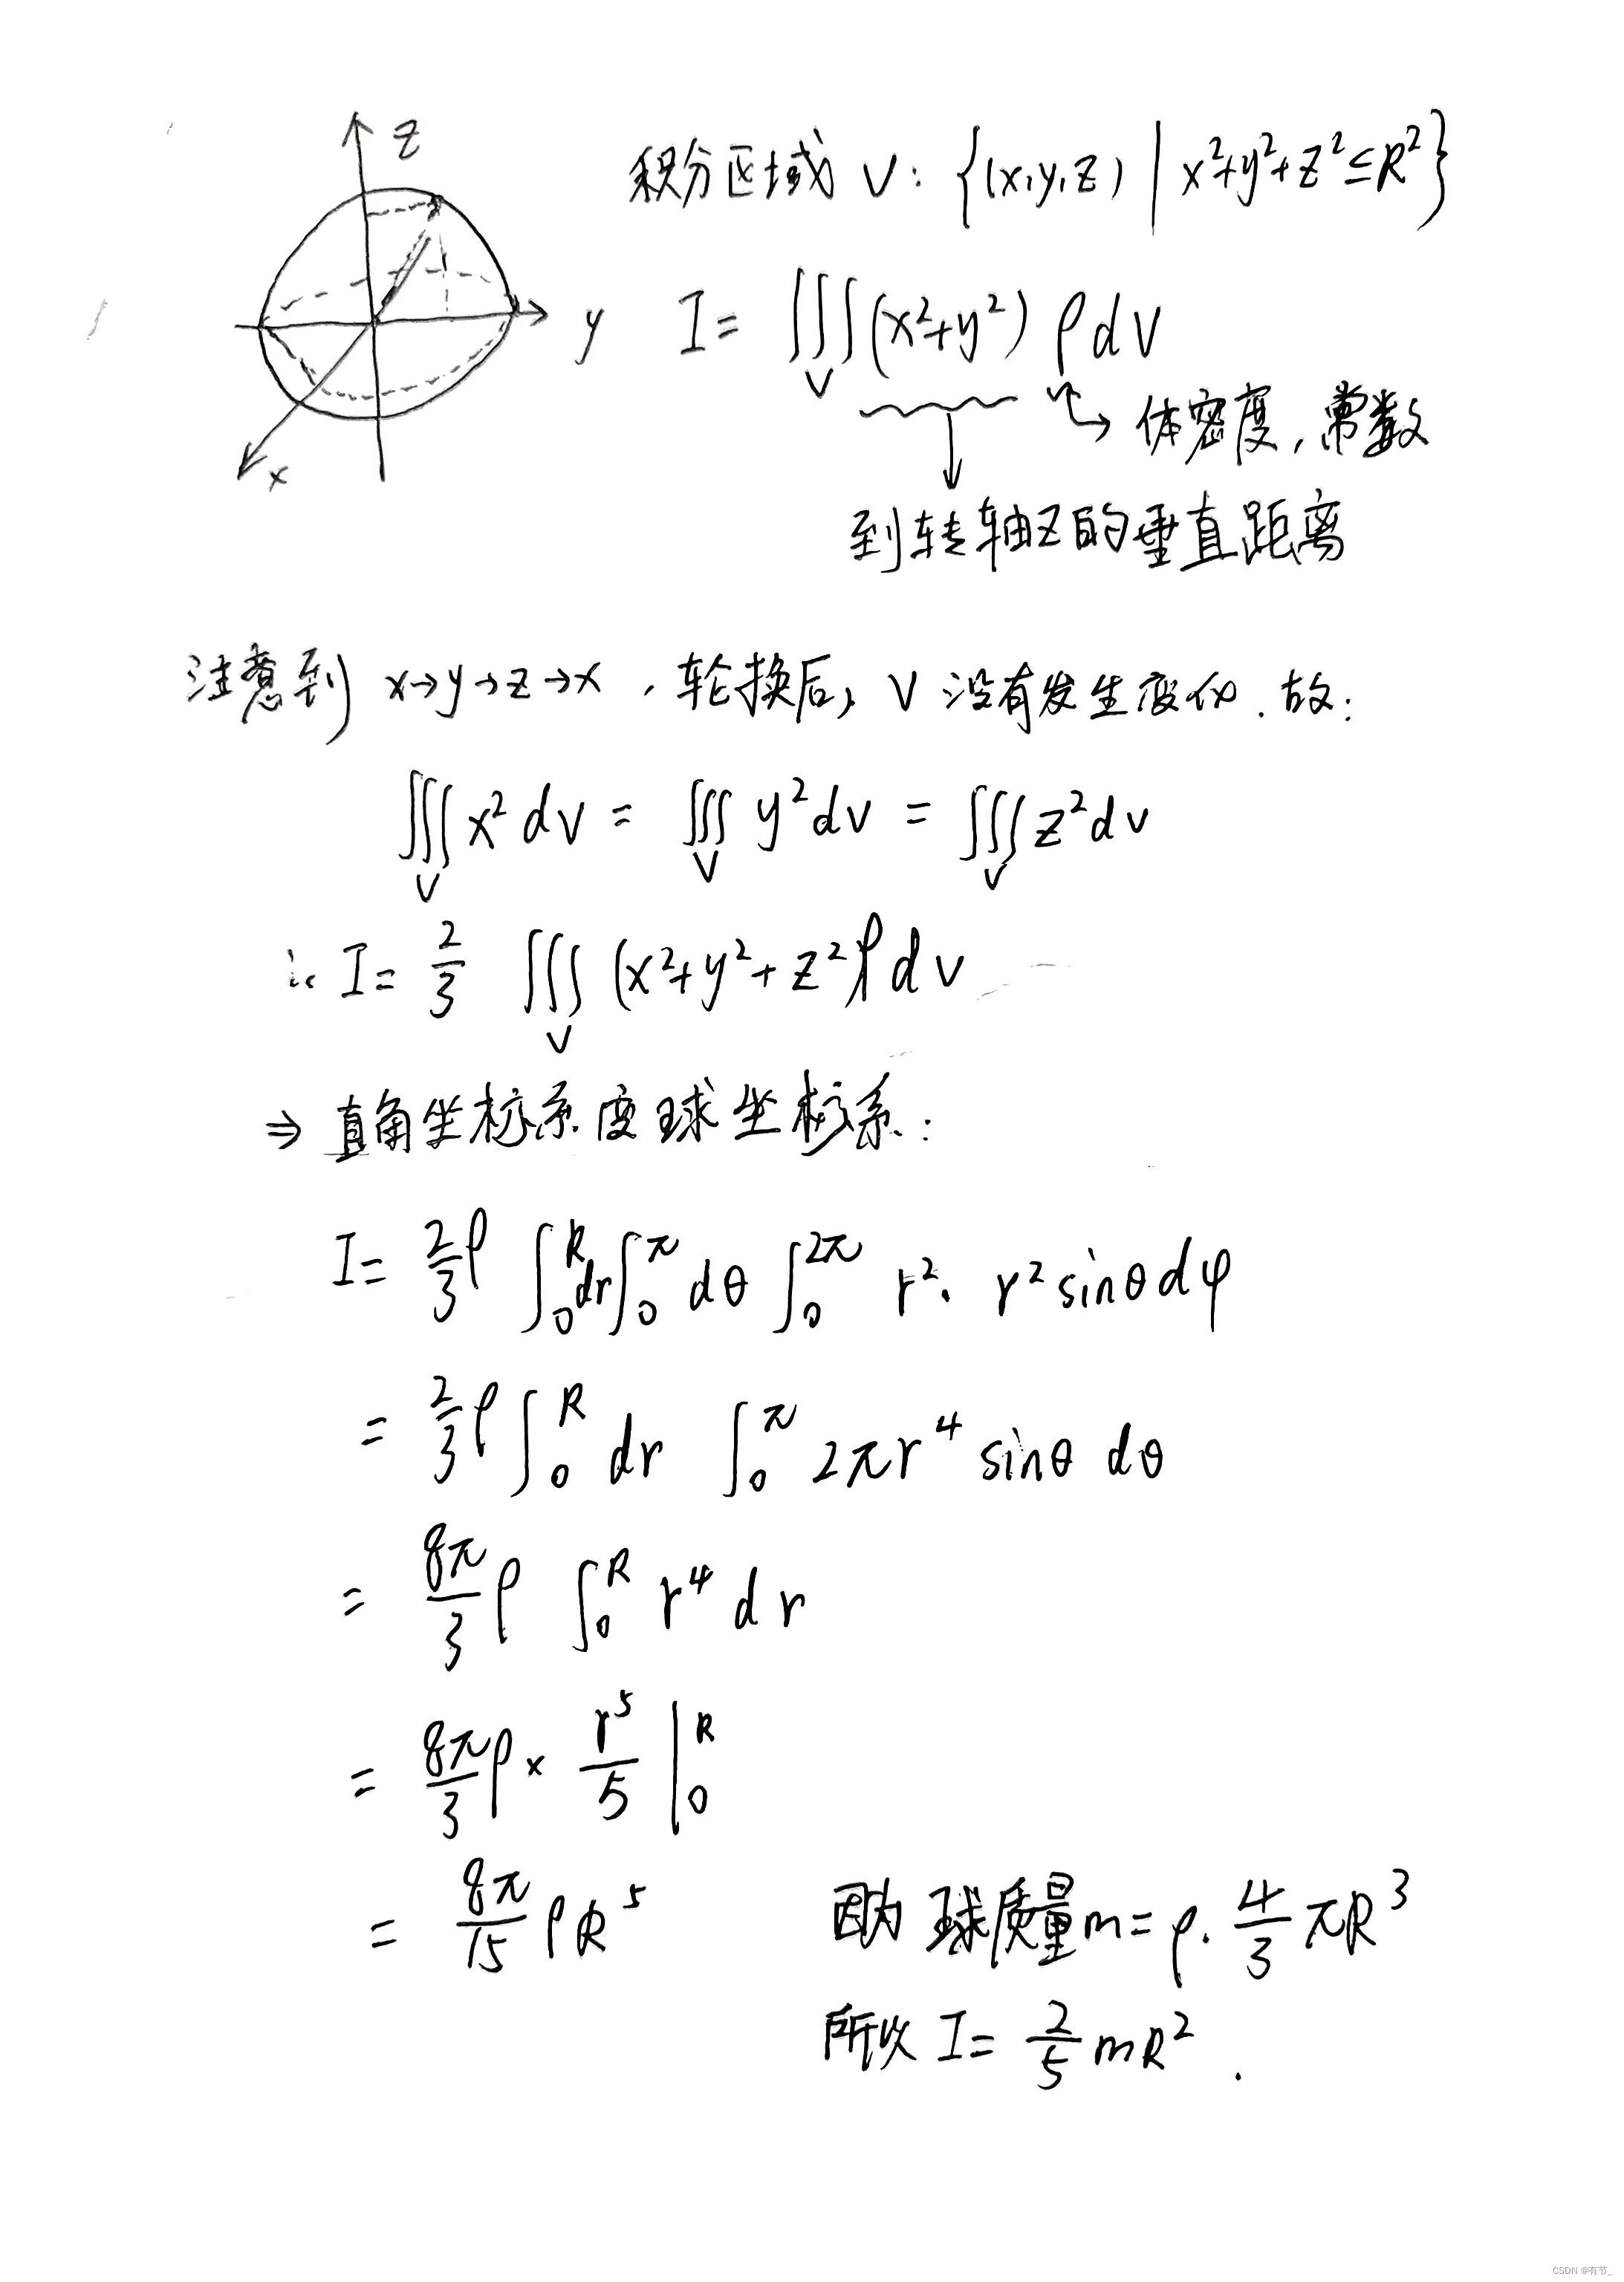 z
积分区域 V: {(x,y,z) | x²+y²+z²≤R²}
y
I= ∭_V (x²+y²) ρdV
体密度,常数
x
到转轴z的垂直距离
注意到 x→y→z→x ,轮换后, V 没有发生变化. 故:
∭_V x² dv = ∭_V y² dv = ∭_V z² dv
∴ I= 2/3 ∭_V (x²+y²+z²)ρdv
⇒ 直角坐标系变球坐标系:
I= 2/3 ρ ∫₀ᴿ dr ∫₀^π dθ ∫₀^2π r²· r² sinθ dφ
= 2/3 ρ ∫₀ᴿ dr ∫₀^π 2πr⁴ sinθ dθ
= 8π/3 ρ ∫₀ᴿ r⁴ dr
= 8π/3 ρ × r⁵/5 |₀ᴿ
= 8π/15 ρR⁵
因为 球质量m=ρ· 4/3 πR³
所以 I= 2/5 mR².
CSDN @有节_